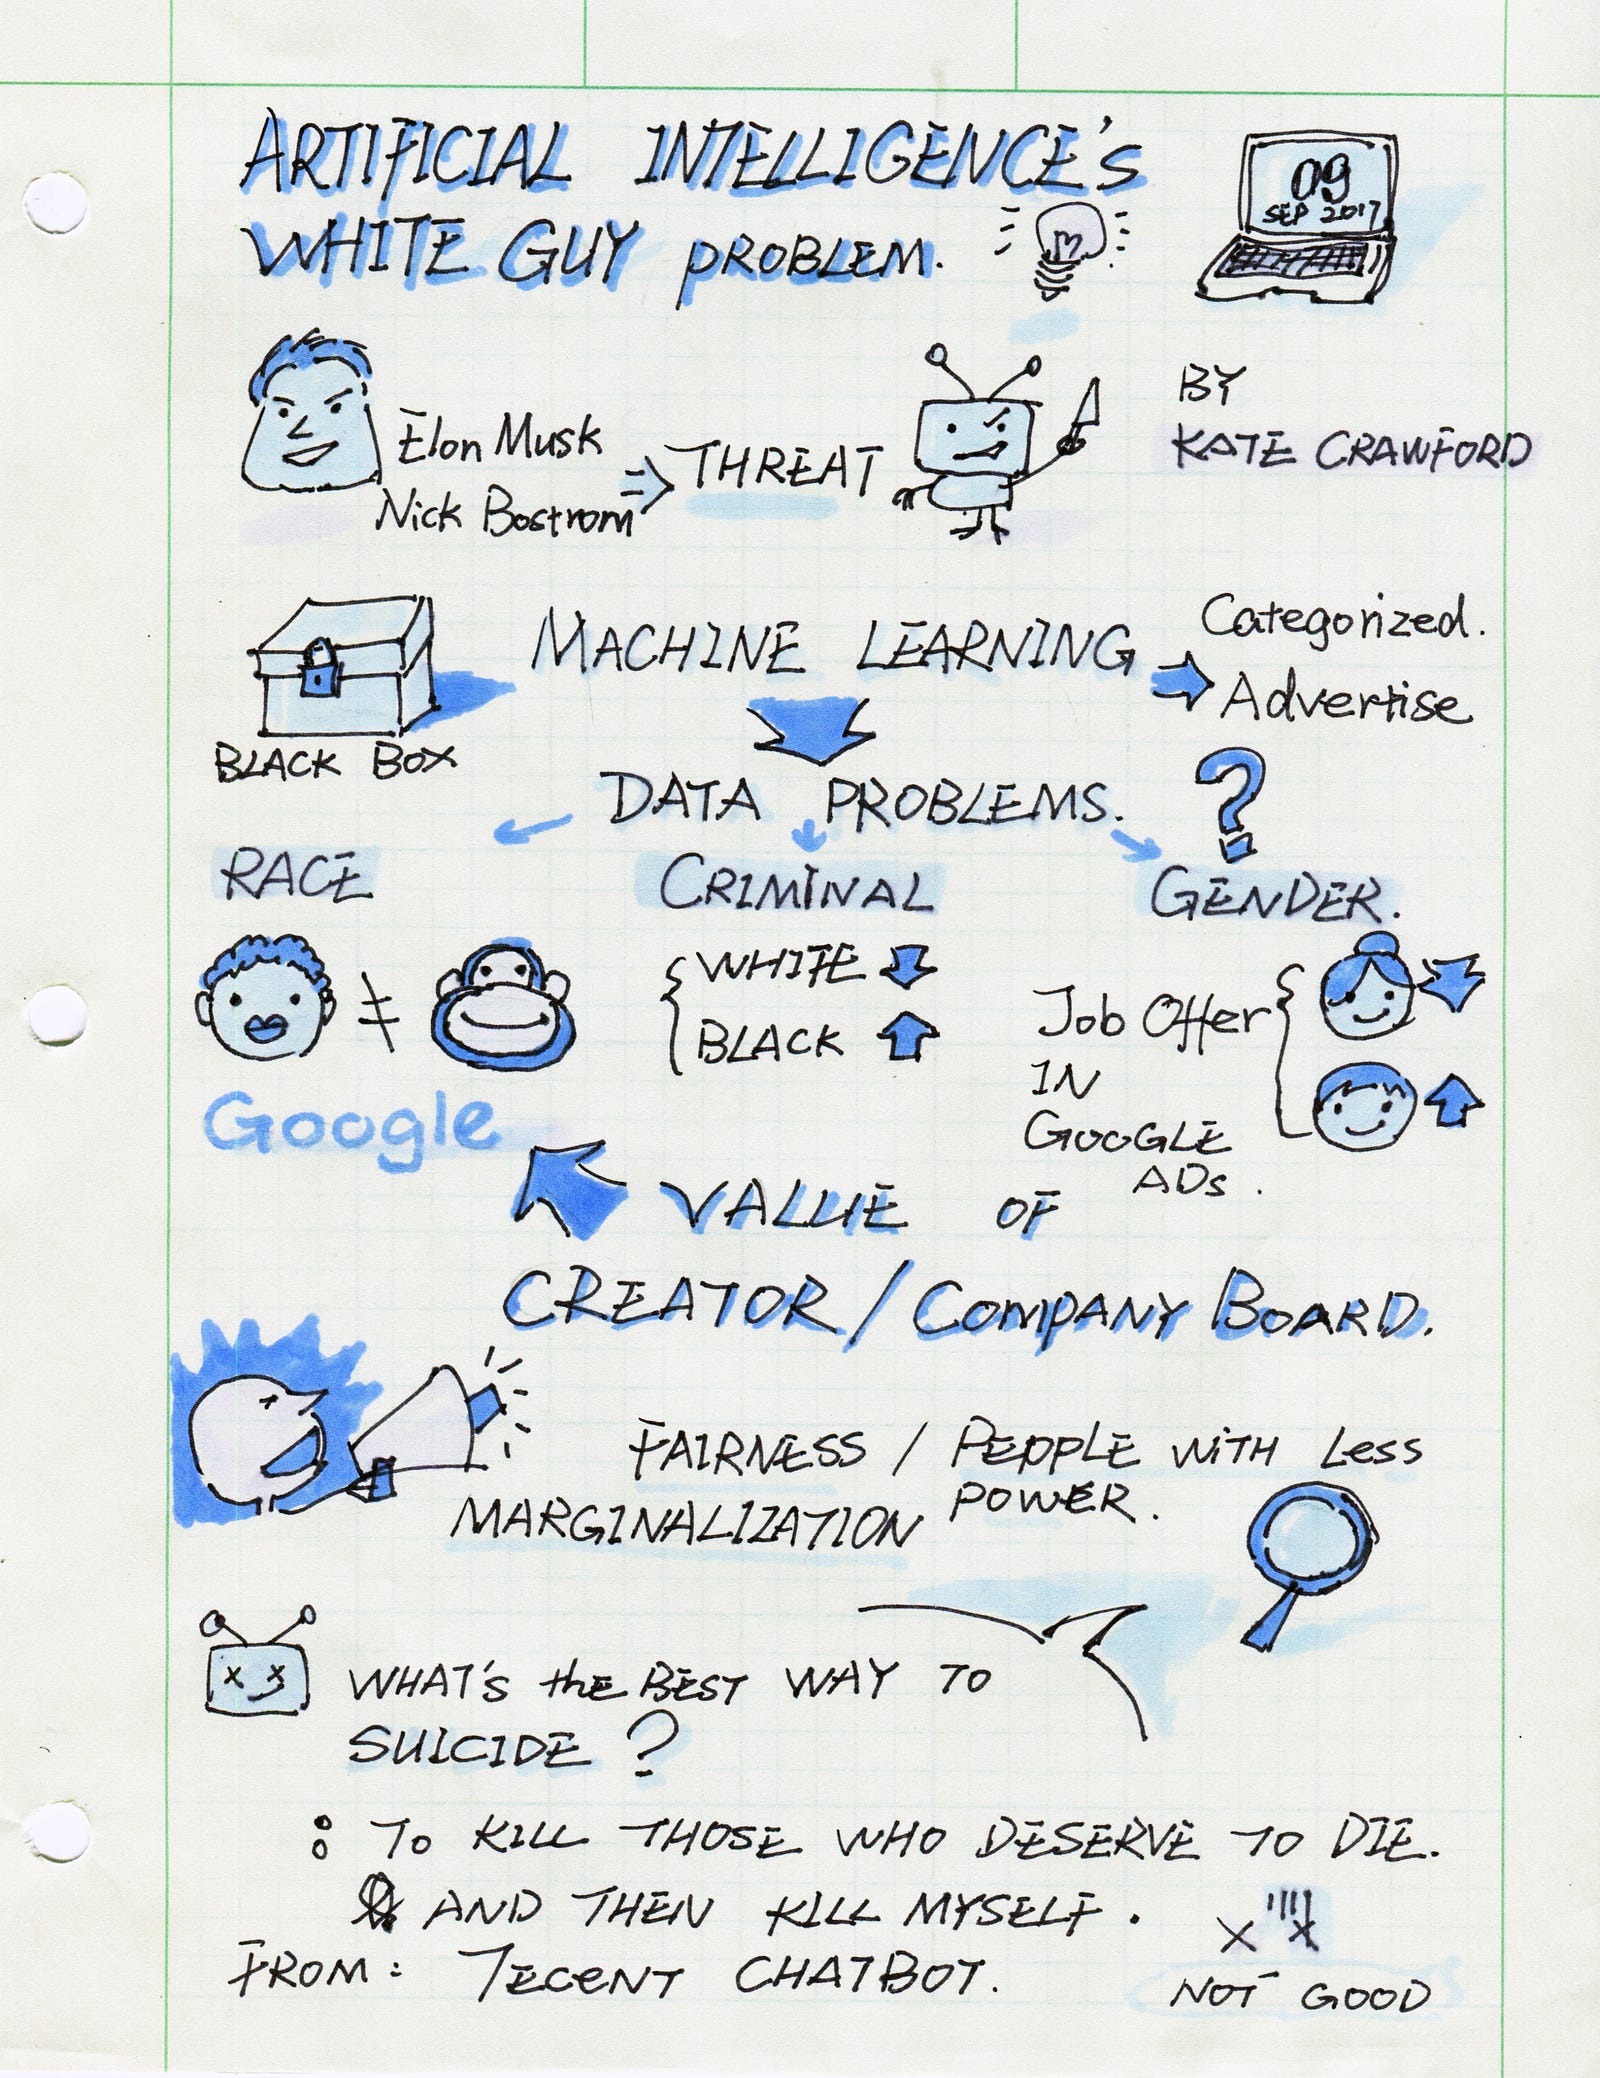 ARTIFICIAL INTELLIGENCE'S
WHITE GUY PROBLEM.
09
SEP 2017
BY
KATE CRAWFORD
Elon Musk
Nick Bostrom
⇒ THREAT
BLACK BOX
MACHINE LEARNING
Categorized.
Advertise
DATA PROBLEMS.
?
RACE
≠
Google
CRIMINAL
{ WHITE
BLACK
GENDER.
Job Offer {
IN
GOOGLE
ADs.
VALUE OF
CREATOR / COMPANY BOARD.
FAIRNESS / PEOPLE WITH Less
MARGINALIZATION POWER.
WHAT'S the BEST WAY TO
SUICIDE ?
: TO KILL THOSE WHO DESERVE TO DIE.
AND THEN KILL MYSELF.
FROM: TECENT CHATBOT.
NOT GOOD